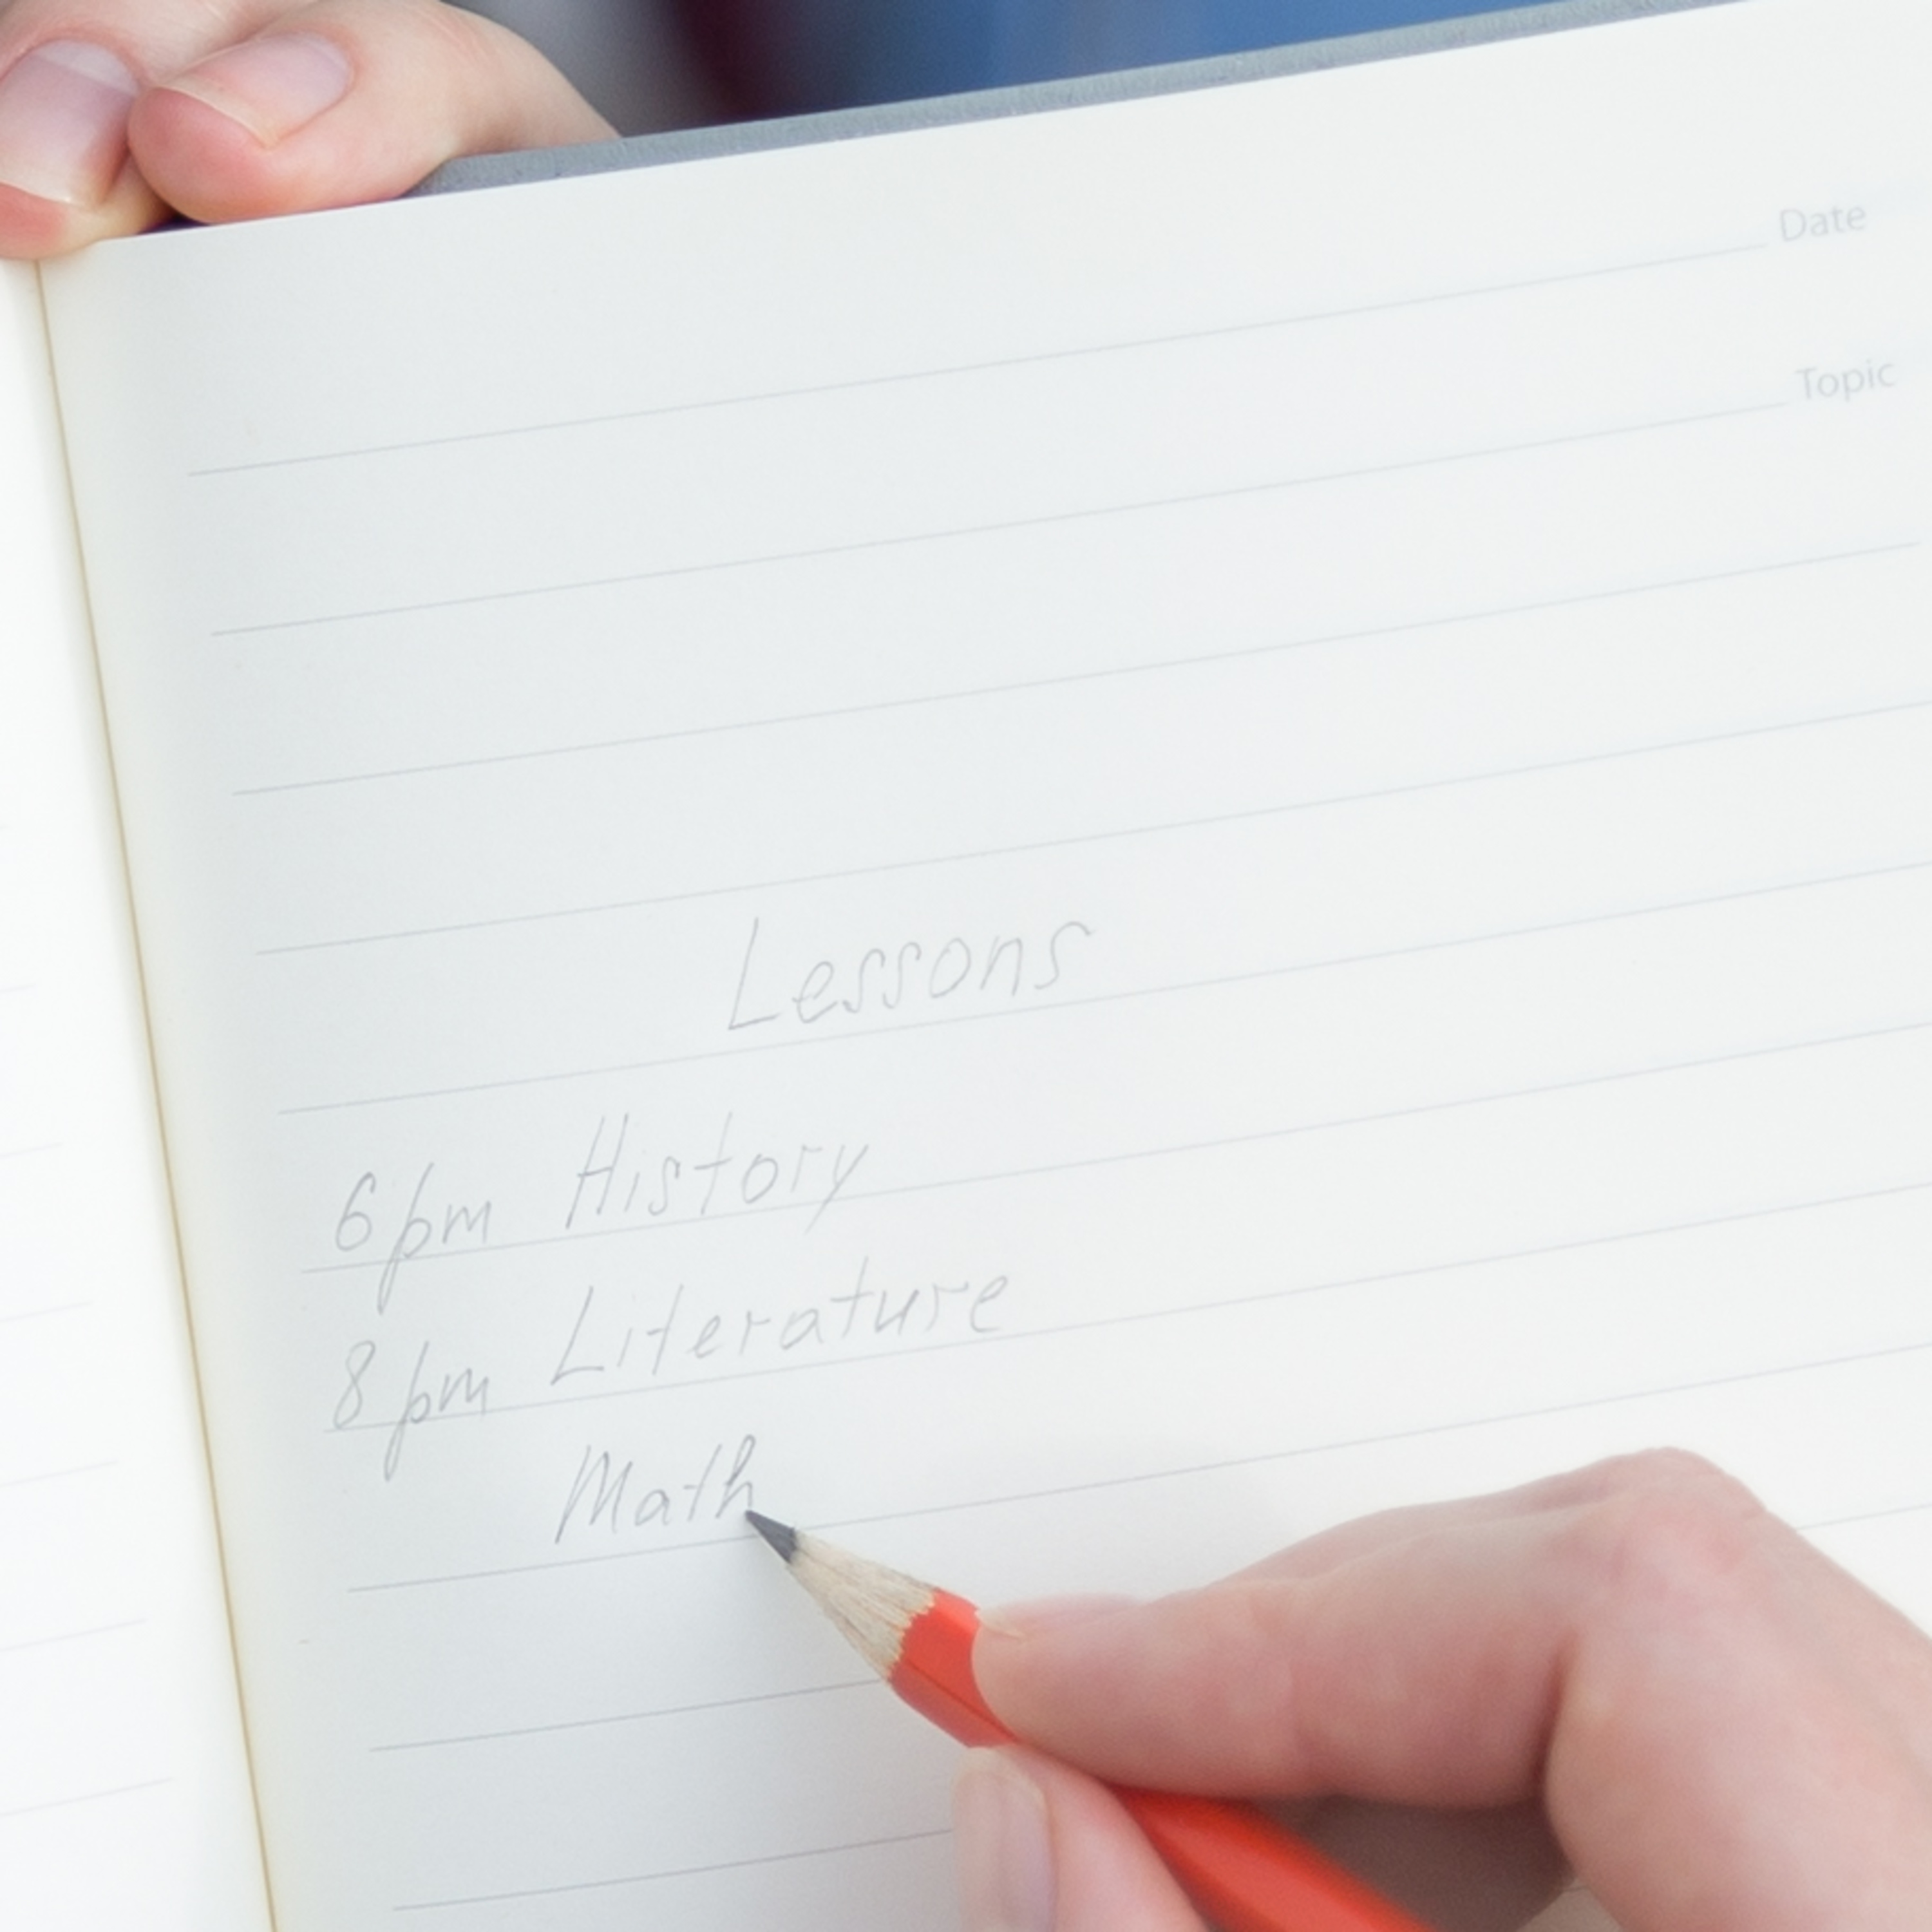 Date
Topic
Lessons
6 pm History
8 pm Literature
Math